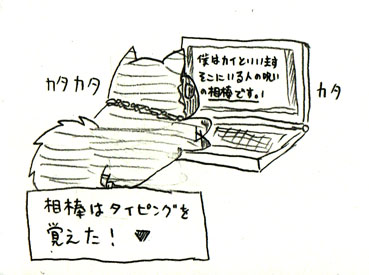 僕はカイといいます
そこにいる人の呪い
の相棒です。!
カタカタ
カタ
相棒はタイピングを
覚えた！♥